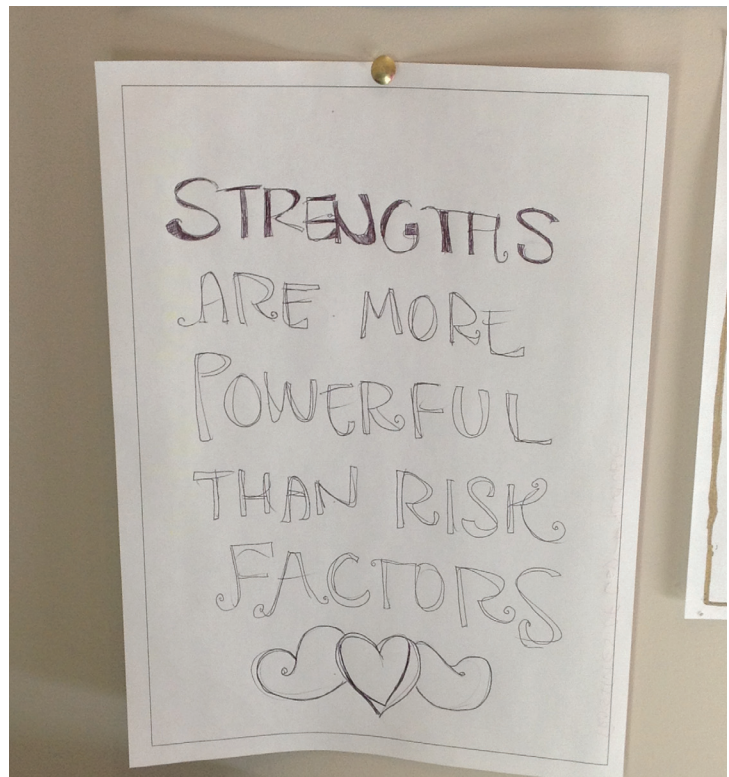 STRENGTHS
ARE MORE
POWERFUL
THAN RISK
FACTORS